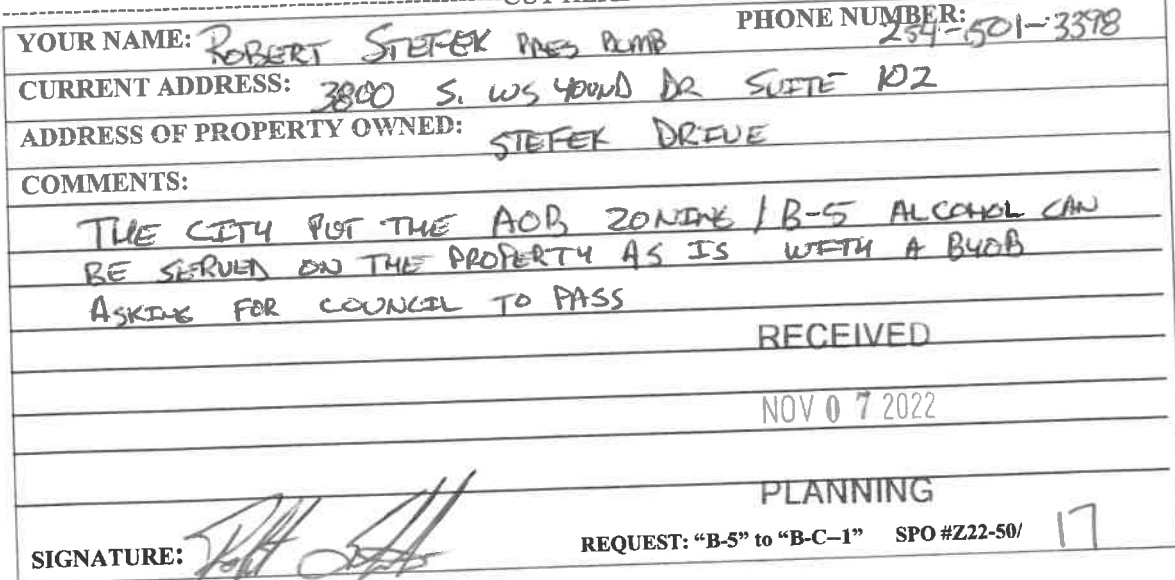 YOUR NAME: ROBERT STEFEK PRES BUMB PHONE NUMBER: 254-501-3398
CURRENT ADDRESS: 3800 S. WS YOUND DR SUITE 102
ADDRESS OF PROPERTY OWNED: STEFEK DRIVE
COMMENTS:
THE CITY PUT THE AOB ZONING / B-5 ALCOHOL CAN
BE SERVED ON THE PROPERTY AS IS WITH A BYOB
ASKING FOR COUNCIL TO PASS
RECEIVED
NOV 07 2022
PLANNING
SIGNATURE: REQUEST: "B-5" to "B-C-1" SPO #Z22-50/ 17